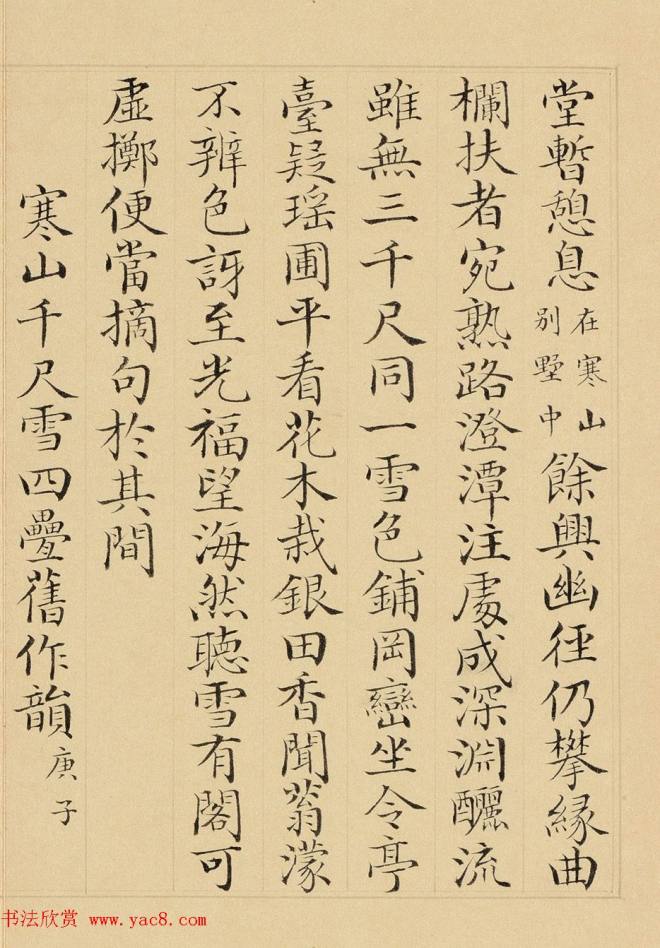 堂暫憩息在寒山別墅中餘興幽徑仍攀緣曲
欄扶者宛熟路澄潭注處成深淵釃流
雖無三千尺同一雪色鋪岡巒坐令亭
臺疑瑤圃平看花木栽銀田香聞蓊濛
不辨色訝至光福望海然聽雪有閣可
虛擲便當摘句於其間
寒山千尺雪四疊舊作韻庚子
书法欣赏 www.yac8.com